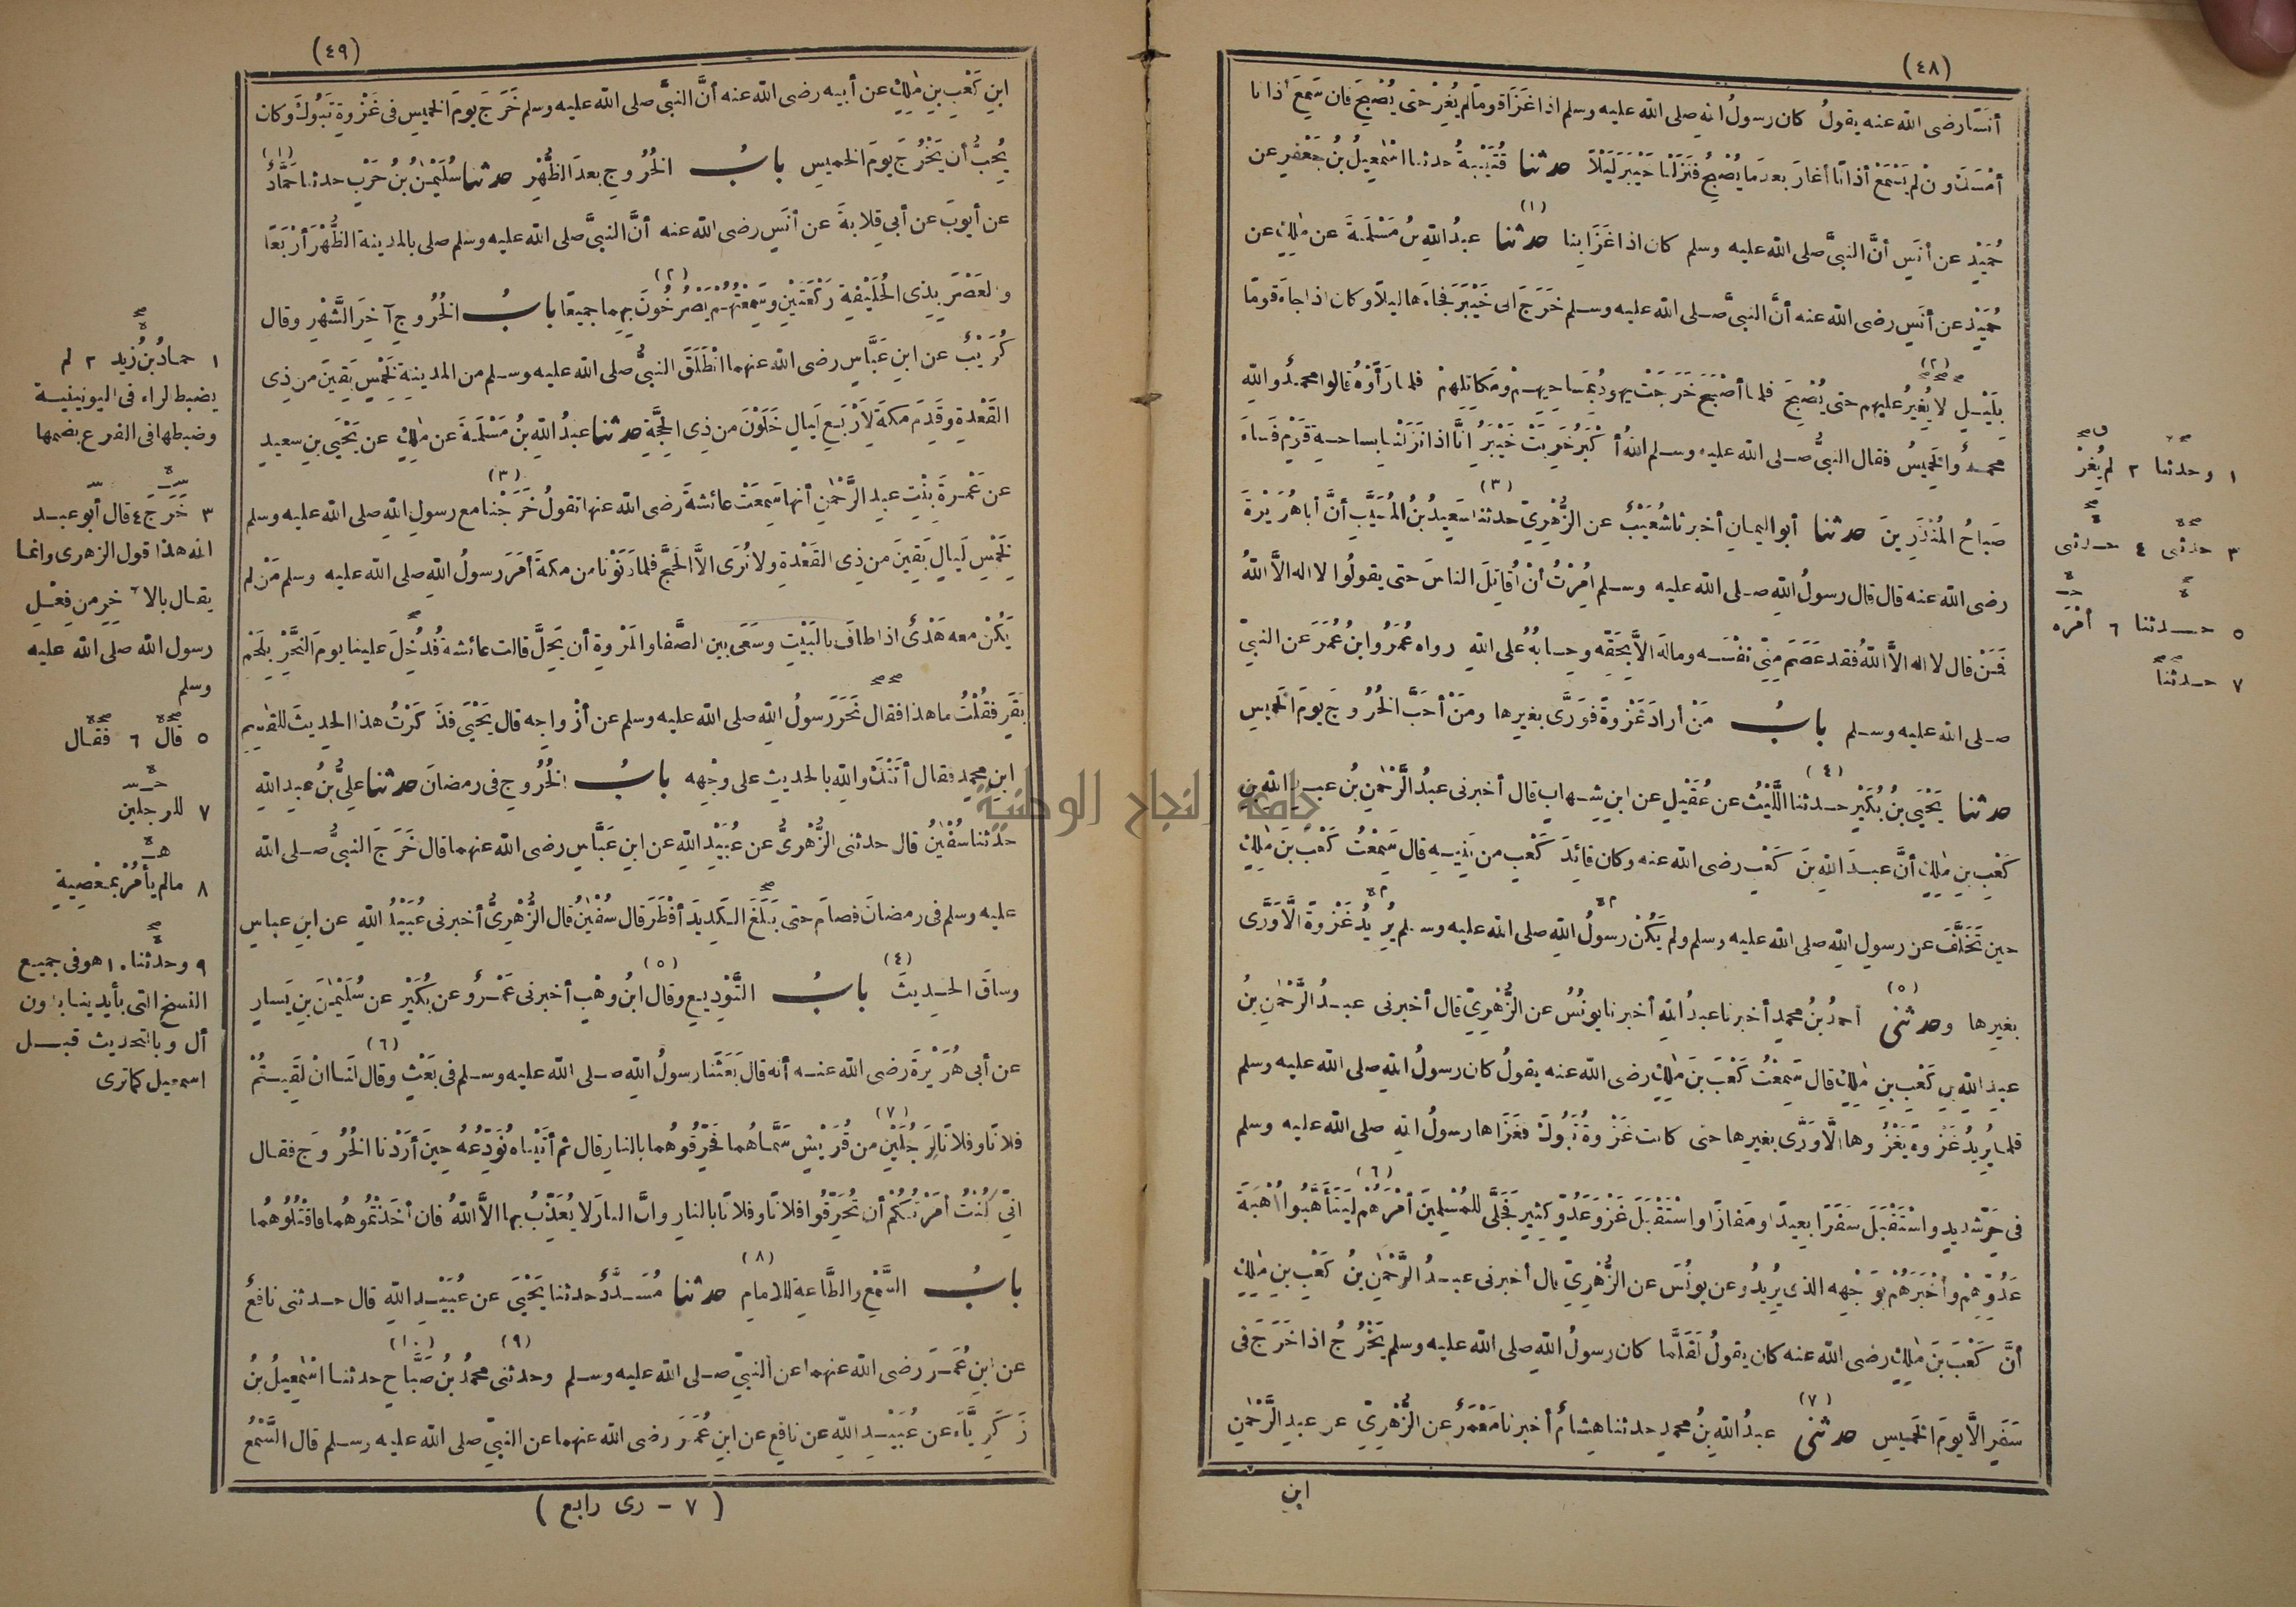 (٤٨)
أنَسًا رضى الله عنه يقولُ كان رسولُ اللهِ صلى الله عليه وسلم اذا غَزَا قوما لم يُغِرْ حتى يُصْبِحَ فان سَمِعَ أذانا
أمْسَكَ وإنْ لم يَسْمَعْ أذانًا أغارَ بعدَ مَا يُصْبِحُ فنَزَلْنا خَيْبَرَ لَيْلًا حدثنا قُتَيْبةُ حدثنا اسْمٰعِيلُ بنُ جَعْفرٍ عن
حُمَيْدٍ عن أنَسٍ أنَّ النبىَّ صلى الله عليه وسلم كان اذا غَزَا بِنا (١) حدثنا عبدُ اللهِ بنُ مَسْلَمةَ عن مٰلِكٍ عن
حُمَيْدٍ عن أنَسٍ رضى الله عنه أنَّ النبىَّ صلى الله عليه وسلم خَرَجَ الى خَيْبَرَ فجاءَها ليلًا وكان اذا جاءَ قومًا
بِلَيْلٍ لا يُغِيرُ (٢) عليهم حتى يُصْبِحَ فلما أصْبَحَ خَرَجَتْ يهودُ بِمَساحِيهِمْ ومَكاتِلِهِمْ فلما رَأَوْهُ قالوا محمدٌ واللهِ
محمدٌ والخَمِيسُ فقال النبىُّ صلى الله عليه وسلم اللهُ أكْبَرُ خَرِبَتْ خَيْبَرُ انَّا اذا نَزَلْنا بِساحةِ قَوْمٍ فساءَ
صَباحُ المُنْذَرِينَ حدثنا أبو اليمان أخبرنا شُعَيْبٌ عن الزُّهْرِىِّ حدثنا (٣) سَعِيدُ بنُ المُسَيَّبِ أنَّ أبا هُرَيْرةَ
رضى الله عنه قال قال رسولُ اللهِ صلى الله عليه وسلم أُمِرْتُ أنْ أُقاتِلَ الناسَ حتى يقولُوا لا اله الاَّ اللهُ
فَمَنْ قال لا اله الاَّ اللهُ فقد عَصَمَ مِنِّى نَفْسَه ومالَه الاَّ بِحَقِّه وحسابُهُ على اللهِ رواه عُمَرُ وابنُ عُمَرَ عن النبىِّ
صلى الله عليه وسلم بابُ مَنْ أرادَ غَزْوةً فوَرَّى بغيرها ومَنْ أحَبَّ الخُرُوجَ يومَ الخَمِيسِ
حدثنا يَحْيَى بنُ بُكَيْرٍ حدثنا (٤) اللَّيْثُ عن عُقَيْلٍ عن ابنِ شِهابٍ قال أخبرنى عبدُ الرَّحْمٰنِ بنُ عبدِ اللهِ بنِ
كَعْبِ بنِ مٰلِكٍ أنَّ عبدَ اللهِ بنَ كَعْبٍ رضى الله عنه وكان قائِدَ كَعْبٍ من بَنِيهِ قال سَمِعْتُ كَعْبَ بنَ مٰلِكٍ
حين تَخَلَّفَ عن رسولِ اللهِ صلى الله عليه وسلم ولم يَكُنْ رسولُ اللهِ صلى الله عليه وسلم يُرِيدُ غَزْوةً الاَّ وَرَّى
بغيرِها وحدثنى (٥) أحمدُ بنُ محمدٍ أخبرنا عبدُ اللهِ أخبرنا يونُسُ عن الزُّهْرِىِّ قال أخبرنى عبدُ الرَّحْمٰنِ بنُ
عبدِ اللهِ بنِ كَعْبِ بنِ مٰلِكٍ قال سَمِعْتُ كَعْبَ بنَ مٰلِكٍ رضى الله عنه يقولُ كان رسولُ اللهِ صلى الله عليه وسلم
قلما يُرِيدُ غَزْوةً يَغْزُوها الاَّ وَرَّى بغيرِها حتى كانت غَزْوةُ تَبُوكَ فغَزَاها رسولُ اللهِ صلى الله عليه وسلم
فى حَرٍّ شديدٍ واسْتَقْبَلَ سَفَرًا بعيدًا ومَفازًا واسْتَقْبَلَ غَزْوَ عَدُوٍّ كَثِيرٍ فَجَلَّى للمُسْلِمِينَ أمْرَهُمْ (٦) لِيَتَأَهَّبُوا أُهْبةَ
عَدُوِّهِمْ وأخْبَرَهُمْ بِوَجْهِه الذى يُرِيدُ وعن يونُسَ عن الزُّهْرِىِّ قال أخبرنى عبدُ الرَّحْمٰنِ بنُ كَعْبِ بنِ مٰلِكٍ
أنَّ كَعْبَ بنَ مٰلِكٍ رضى الله عنه كان يقولُ لَقَلَّما كان رسولُ اللهِ صلى الله عليه وسلم يَخْرُجُ اذا خَرَجَ فى
سَفَرٍ الاَّ يومَ الخَمِيسِ حدثنى (٧) عبدُ اللهِ بنُ محمدٍ حدثنا هِشامٌ أخبرنا مَعْمَرٌ عن الزُّهْرِىِّ عن عبدِ الرَّحْمٰنِ
ابن
١ وحدثنا ٢ لم يُغِرْ
٣ حدثنى ٤ حدثنى
٥ حدثنا ٦ أمْرَه
٧ حدثنا
(٤٩)
ابنِ كَعْبِ بنِ مٰلِكٍ عن أبيه رضى الله عنه أنَّ النبىَّ صلى الله عليه وسلم خَرَجَ يومَ الخميسِ فى غَزْوةِ تَبُوكَ وكان
يُحِبُّ أن يَخْرُجَ يومَ الخميسِ بابُ الخُرُوجِ بعدَ الظُّهْرِ حدثنا سُلَيْمٰنُ بنُ حَرْبٍ حدثنا حَمَّادٌ (١)
عن أيوبَ عن أبى قِلابةَ عن أنَسٍ رضى الله عنه أنَّ النبىَّ صلى الله عليه وسلم صلى بالمدينة الظُّهْرَ أرْبَعًا
والعَصْرَ بِذِى الحُلَيْفةِ رَكْعَتَيْنِ وسَمِعْتُهُمْ يَصْرُخُونَ (٢) بِهِما جميعًا بابُ الخُرُوجِ آخِرَ الشَّهْرِ وقال
كُرَيْبٌ عن ابنِ عَبَّاسٍ رضى الله عنهما انْطَلَقَ النبىُّ صلى الله عليه وسلم من المدينةِ لِخَمْسٍ بَقِينَ من ذِى
القَعْدةِ وقَدِمَ مكةَ لِأَرْبَعِ لَيالٍ خَلَوْنَ من ذِى الحِجَّةِ حدثنا عبدُ اللهِ بنُ مَسْلَمةَ عن مٰلِكٍ عن يَحْيَى بنِ سعيدٍ
عن عَمْرةَ بِنْتِ عبدِ الرَّحْمٰنِ أنها سَمِعَتْ عائشةَ رضى الله عنها تقولُ خَرَجْنا (٣) مع رسولِ اللهِ صلى الله عليه وسلم
لِخَمْسِ لَيالٍ بَقِينَ من ذِى القَعْدةِ ولا نُرَى الاَّ الحَجَّ فلما دَنَوْنا من مكةَ أمَرَ رسولُ اللهِ صلى الله عليه وسلم مَنْ لم
يَكُنْ معه هَدْىٌ اذا طافَ بالبَيْتِ وسَعَى بين الصَّفا والمَرْوةِ أن يَحِلَّ قالت عائشةُ فَدُخِلَ علينا يومَ النَّحْرِ بِلَحْمِ
بَقَرٍ فقُلْتُ ما هذا فقال نَحَرَ رسولُ اللهِ صلى الله عليه وسلم عن أزْواجِه قال يَحْيَى فذَكَرْتُ هذا الحديثَ للقٰسِمِ
ابنِ محمدٍ فقال أتَتْكَ واللهِ بالحديثِ على وجْهِه بابُ الخُرُوجِ فى رمضانَ حدثنا علىُّ بنُ عبدِ اللهِ
حدثنا سُفْيٰنُ قال حدثنى الزُّهْرىُّ عن عُبَيْدِ اللهِ عن ابنِ عَبَّاسٍ رضى الله عنهما قال خَرَجَ النبىُّ صلى الله
عليه وسلم فى رمضانَ فصامَ حتى بَلَغَ الكَدِيدَ أفْطَرَ قال سُفْيٰنُ قال الزُّهْرِىُّ أخبرنى عُبَيْدُ اللهِ عن ابنِ عباسٍ
وساقَ الحديثَ (٤) بابُ التَّوْدِيعِ وقال (٥) ابنُ وهْبٍ أخبرنى عَمْرٌو عن بُكَيْرٍ عن سُلَيْمٰنَ بنِ يَسارٍ
عن أبى هُرَيْرةَ رضى الله عنه أنه قال بَعَثَنا رسولُ اللهِ صلى الله عليه وسلم فى بَعْثٍ وقال (٦) لَنا انْ لَقِيتُمْ
فلانًا وفلانًا لِرَجُلَيْنِ (٧) من قُرَيْشٍ سَمَّاهُما فَحَرِّقُوهُما بالنارِ قال ثم أتَيْناه نُوَدِّعُهُ حِينَ أرَدْنا الخُرُوجَ فقال
انِّى كُنْتُ أمَرْتُكُمْ أن تُحَرِّقُوا فلانًا وفلانًا بالنارِ وانَّ النارَ لا يُعَذِّبُ بها الاَّ اللهُ فان أخَذْتُمُوهُما فاقْتُلُوهُما
بابُ السَّمْعِ والطَّاعةِ للامامِ (٨) حدثنا مُسَدَّدٌ حدثنا يَحْيَى عن عُبَيْدِ اللهِ قال حدثنى نافعٌ
عن ابنِ عُمَرَ رضى الله عنهما عن النبىِّ صلى الله عليه وسلم وحدثنى (٩) محمدُ بنُ صَبَّاحٍ (١٠) حدثنا اسْمٰعِيلُ بنُ
زَكَرِيَّاءَ عن عُبَيْدِ اللهِ عن نافعٍ عن ابنِ عُمَرَ رضى الله عنهما عن النبىِّ صلى الله عليه وسلم قال السَّمْعُ
( ٧ - رى رابع )
١ حمادُ بنُ زيد ٢ لم
يضبط الراء فى اليونينية
وضبطها فى الفرع بضمها
٣ خَرَجَ ٤ قال أبو عبد
الله هذا قول الزهرى وانما
يقال بالآخِرِ من فِعْلِ
رسول الله صلى الله عليه
وسلم
٥ قال ٦ فقال
٧ للرجلين
٨ مالم يأمُرْ بمَعْصِيةٍ
٩ وحدثنا ١٠ هو فى جميع
النسخ التى بأيدينا بدون
أل وبالتحديث قبل
اسمعيل كما ترى
جامعة النجاح الوطنية